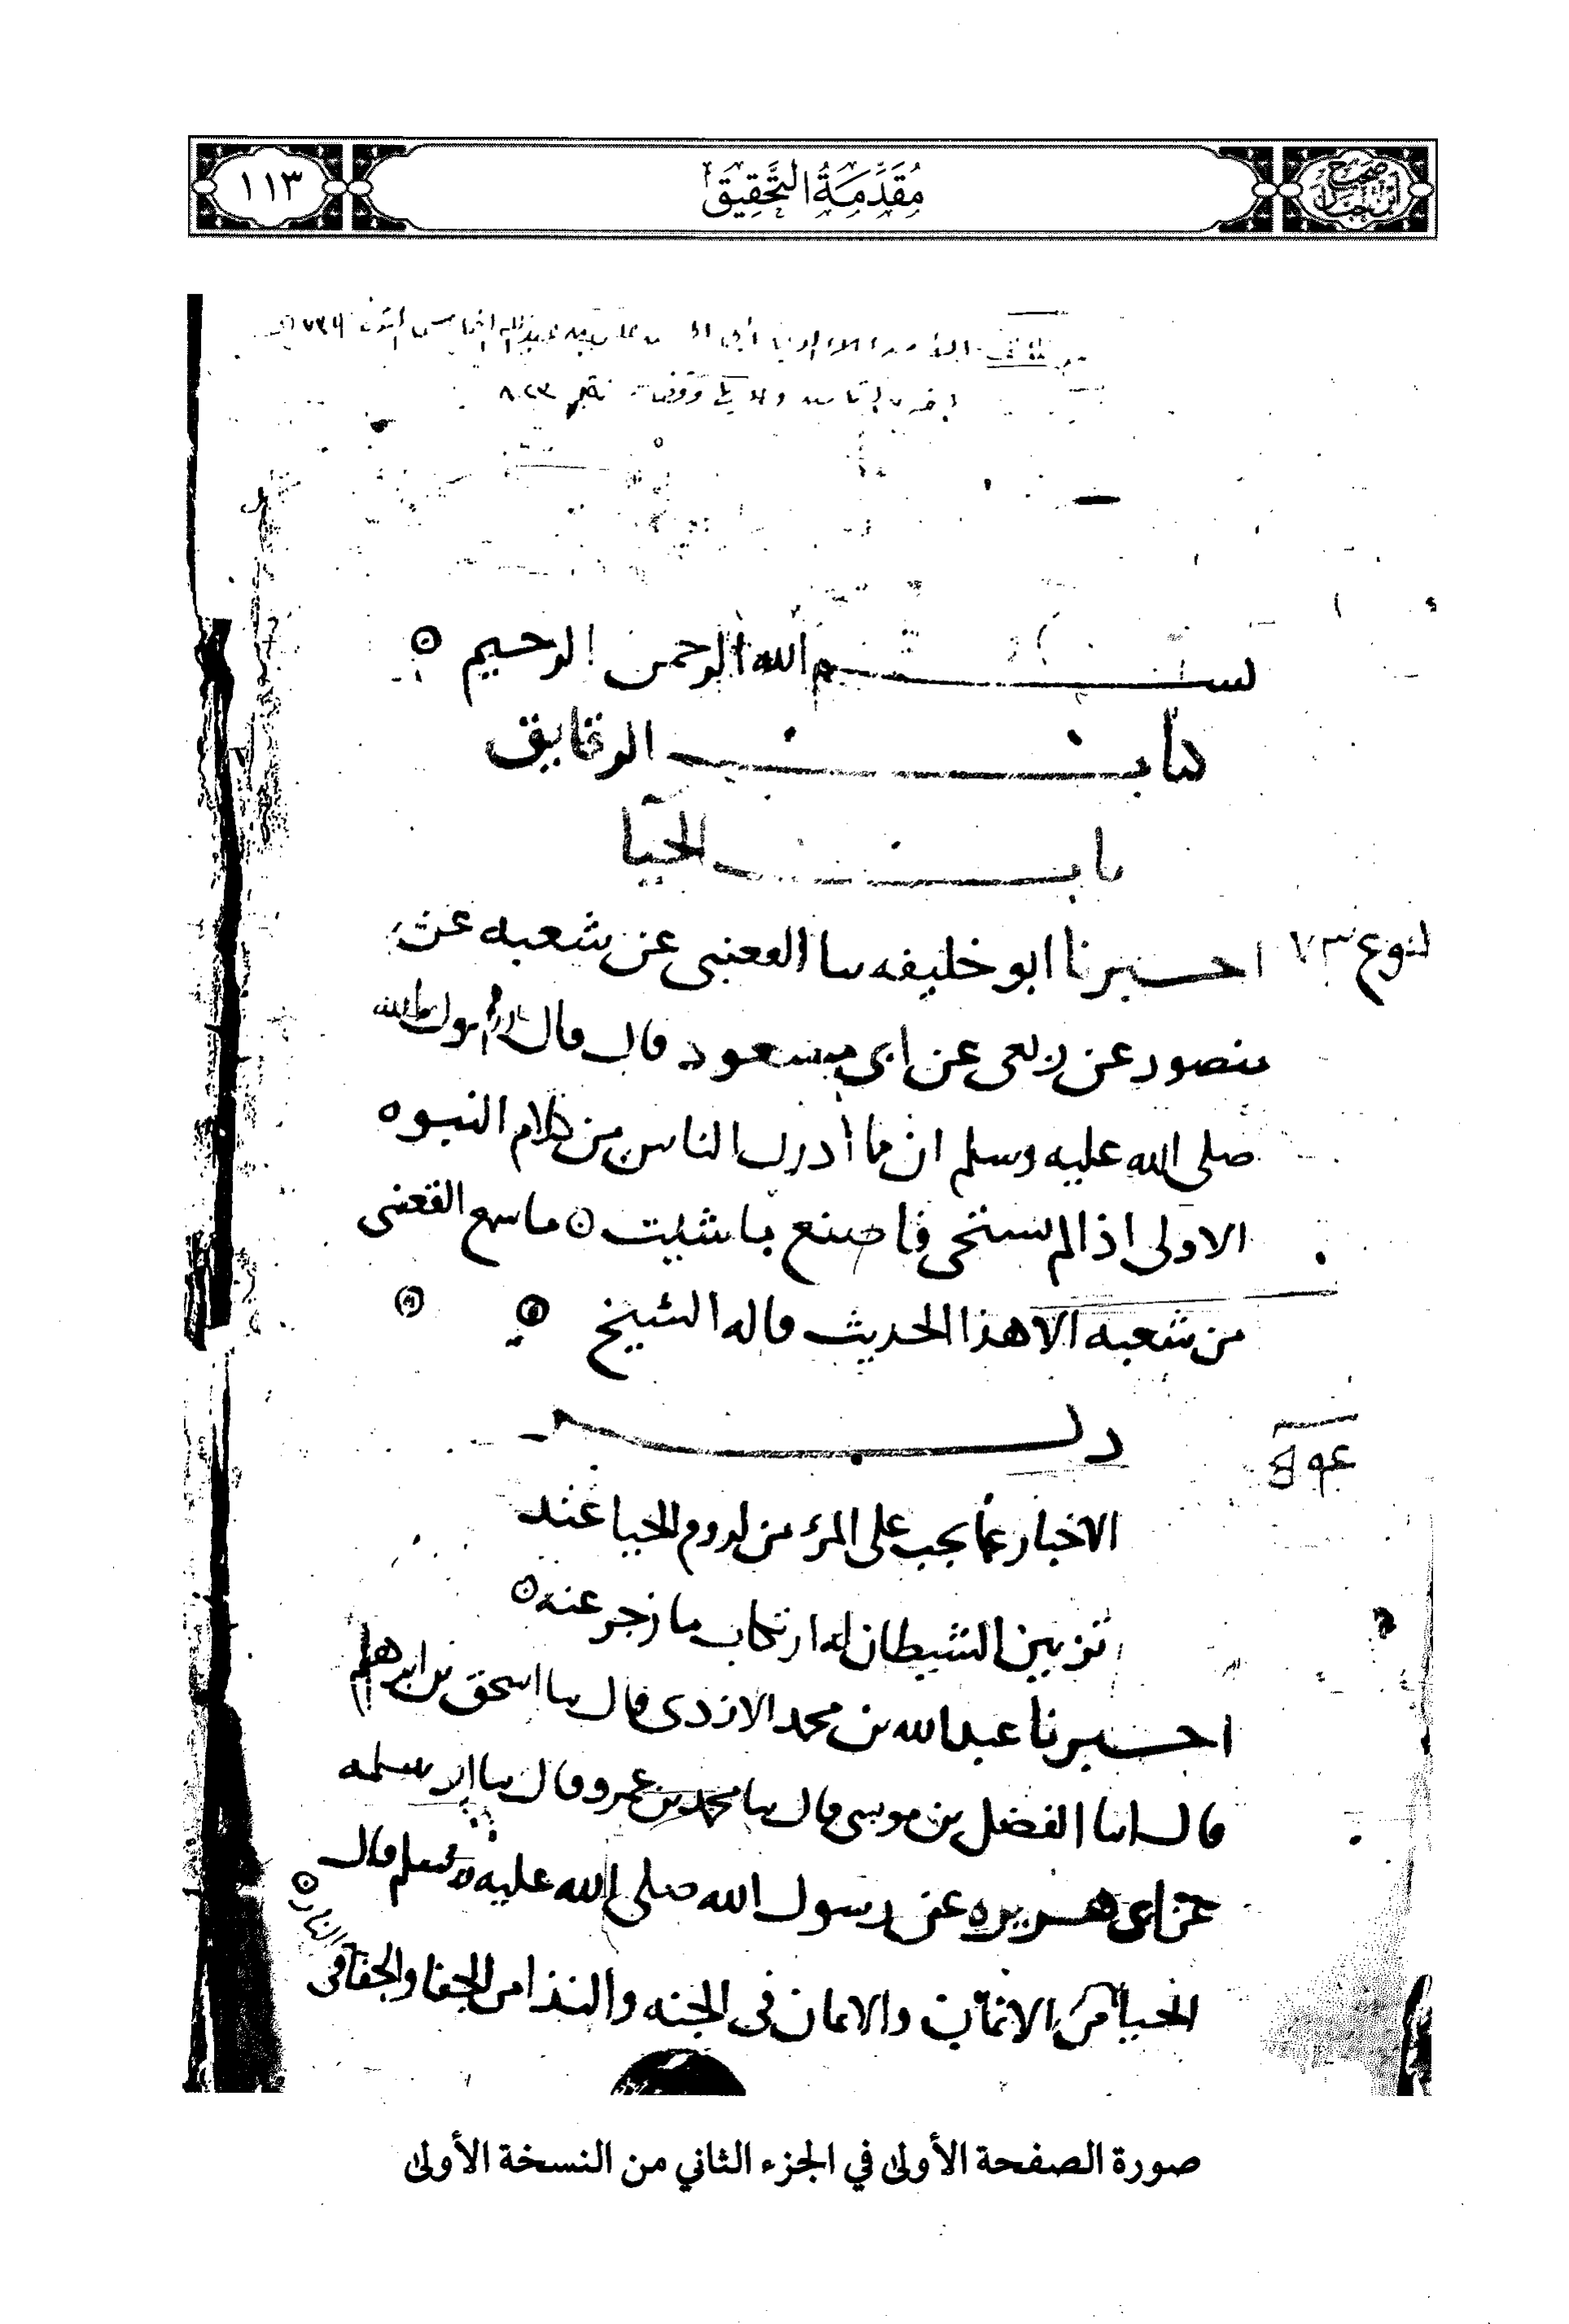 صحيح ابن حبان
مُقَدِّمَةُ التَّحْقِيقِ
١١٣
بســـم الله الرحمن الرحيم
كتاب الرقايق
باب الحيا
احبرنا ابو خليفه سا القعنبى عن شعبه عن
النوع ٧٣
منصور عن ربعى عن ابى مسعود قال قال رسول الله
صلى الله عليه وسلم ان مما أدرك الناس من كلام النبوه
الاولى اذا لم تستحى فاصنع ما شئت ه ما سمع القعنبى
من شعبه الا هذا الحديث قاله الشيخ
ذكـــر
الاخبار عما يجب على المرء من لزوم الحيا عند
تزيين الشيطان له ارتكاب ما زجر عنه ه
احبرنا عبد الله بن محمد الازدى قال سا اسحق بن ابرهيم
قال انبا الفضل بن موسى قال سا محمد بن عمرو قال سا ابو سلمه
عن ابى هريره عن رسول الله صلى الله عليه وسلم قال
الحيا من الايمان والايمان فى الجنه والبذا من الجفا والجفا فى
النار ه
صورة الصفحة الأولى في الجزء الثاني من النسخة الأولى